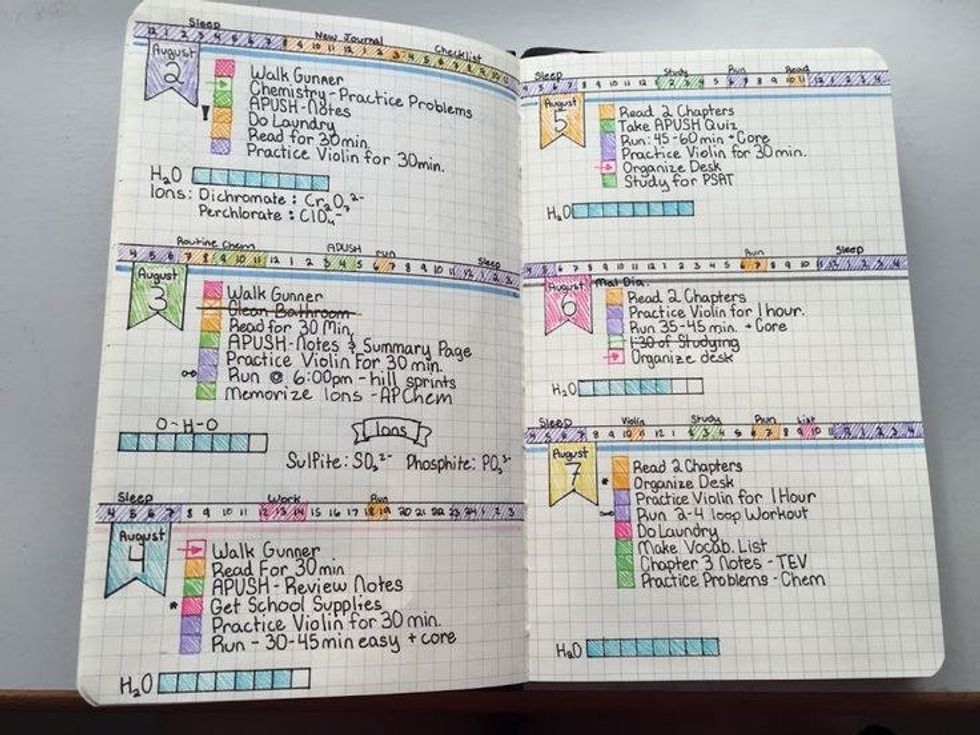 Sleep New Journal Checklist
August 2
Walk Gunner
Chemistry - Practice Problems
APUSH-Notes
! Do Laundry
Read for 30min
Practice Violin for 30min.
H₂O
Ions: Dichromate: Cr₂O₇²⁻
Perchlorate: ClO₄⁻
Routine Chem APUSH run Sleep
4 5 6 7 8 9 10 11 12 1 2 3 4 5 6 7 8 9 10 11 12 1 2 3
August 3
Walk Gunner
Clean Bathroom
Read for 30 Min
APUSH-Notes & Summary Page
Practice Violin For 30 min.
Run @ 6:00pm - hill sprints
Memorize Ions - AP Chem
O-H-O
Ions
Sulfite: SO₃²⁻ Phosphite: PO₃³⁻
Sleep Work Run
4 5 6 7 8 9 10 11 12 13 14 15 16 17 18 19 20 21 22 23 24 1 2 3
August 4
Walk Gunner
Read For 30 min
APUSH - Review Notes
* Get School Supplies
Practice Violin for 30 min.
Run - 30-45 min easy + core
H₂O
Sleep Study Run Read
4 5 6 7 8 9 10 11 12 1 2 3 4 5 6 7 8 9 10 11 12 1 2 3 4
August 5
Read 2 Chapters
Take APUSH Quiz
Run: 45-60 min + Core
Practice Violin for 30 min.
Organize Desk
Study for PSAT
H₂O
Run Sleep
4 5 6 7 8 9 10 11 12 1 2 3 4 5 6 7 8 9 10 11 12 1 2 3 4
August 6
Mal Dia.
Read 2 Chapters
Practice Violin for 1 hour.
Run 35-45 min. + Core
1:30 of Studying
Organize desk
H₂O
Sleep Violin Study Run List
4 5 6 7 8 9 10 11 12 1 2 3 4 5 6 7 8 9 10 11 12 1 2 3 4
August 7
Read 2 Chapters
* Organize Desk
Practice Violin for 1 Hour
Run 2-4 loop Workout
Do Laundry
Make Vocab. List
Chapter 3 Notes - TEV
Practice Problems - Chem
H₂O